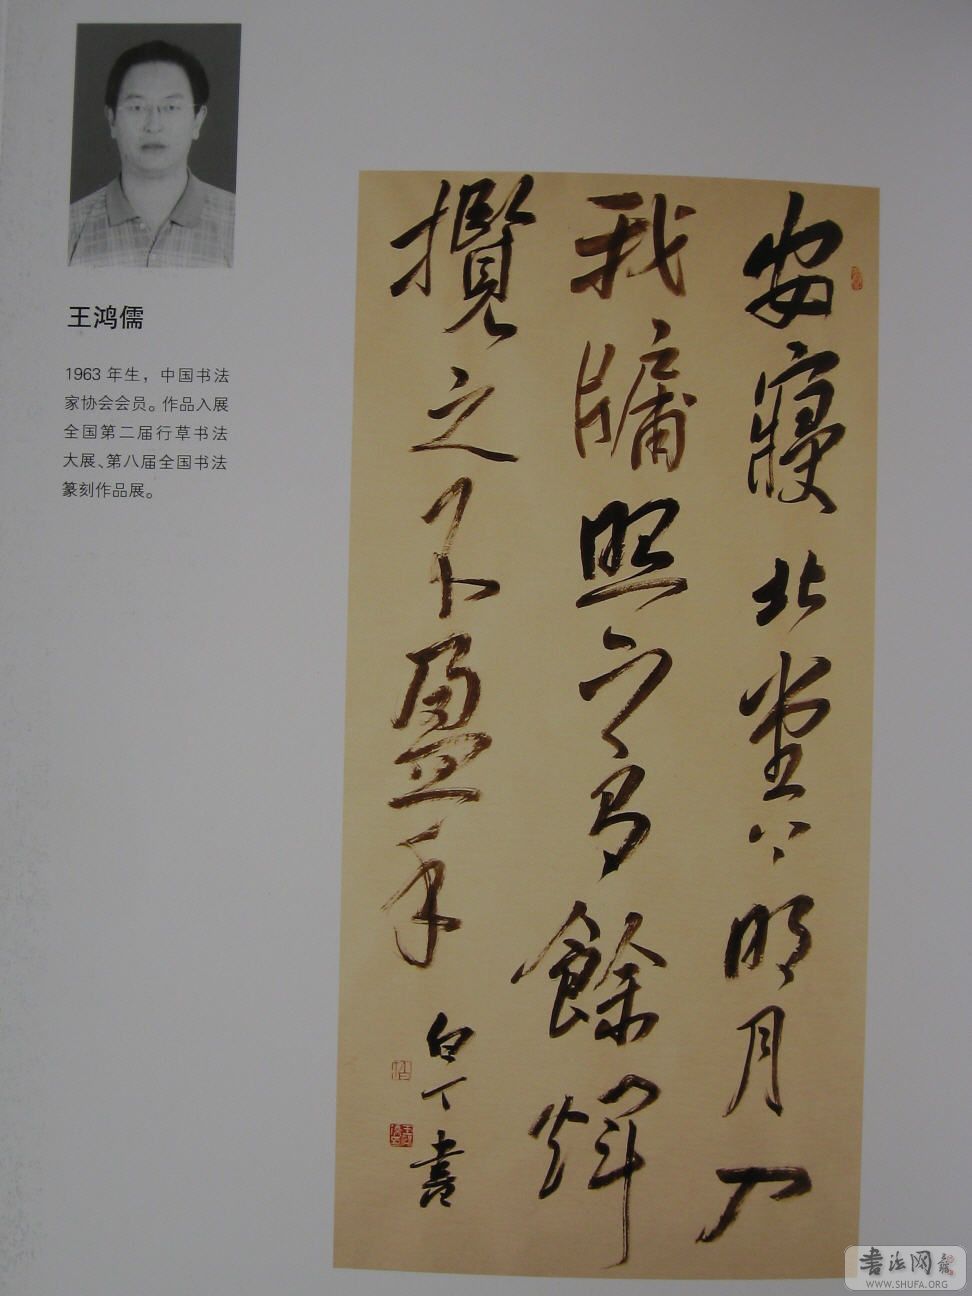 王鸿儒
1963 年生，中国书法
家协会会员。作品入展
全国第二届行草书法
大展、第八届全国书法
篆刻作品展。
安寢北堂上明月入
我牖照之有餘煇
攬之不盈手
白丁書
書法网
WWW.SHUFA.ORG